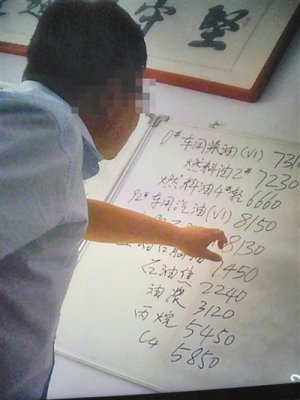 堅守
0# 车用柴油(VI) 731
燃料油2# 7230
燃料油4#轻 6660
92#车用汽油(VI) 8150
8130
石脑油 7450
石油焦 2240
油浆 3120
丙烷 5450
C4 5850